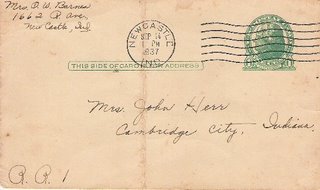 Mrs. O. W. Barnes
1662 Q Ave.
New Castle, Ind.
NEWCASTLE
SEP
1 PM
1937
IND.
THIS SIDE OF CARD IS FOR ADDRESS
Mrs. John Herr
Cambridge City, Indiana.
R. R. 1